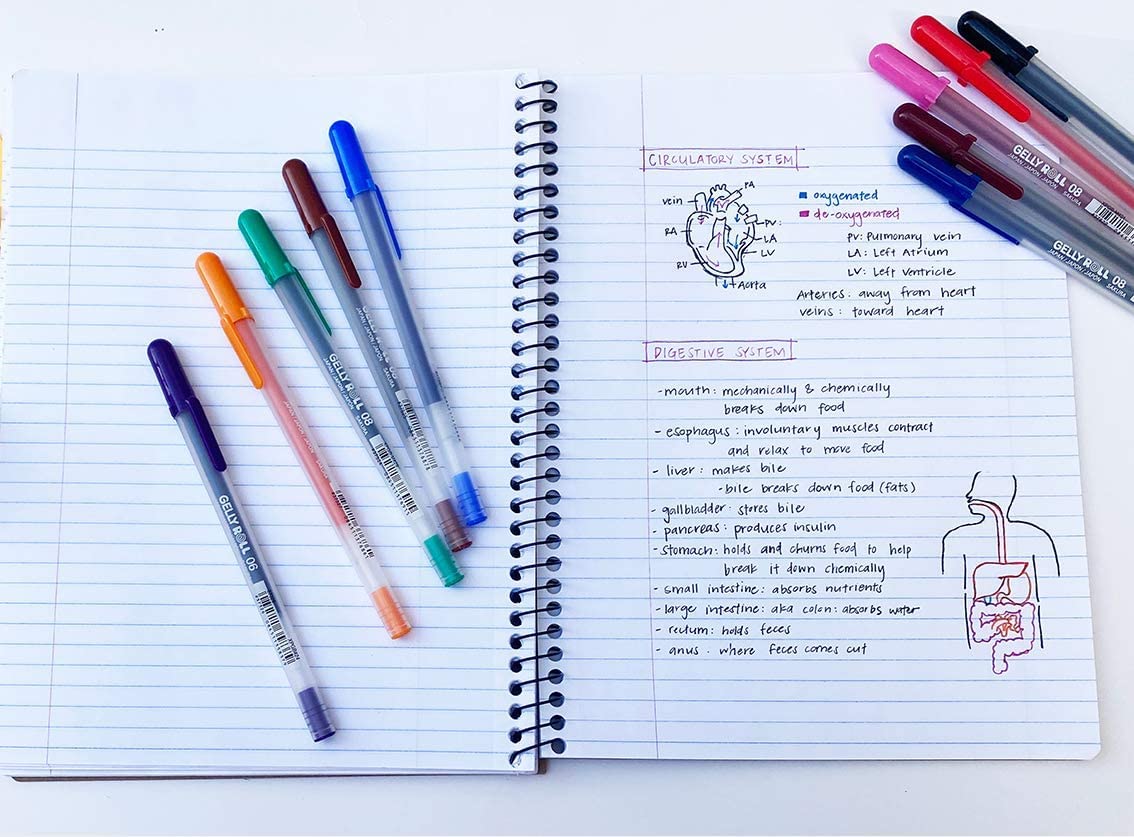 CIRCULATORY SYSTEM
vein
PA
RA
PV:
LA
LV
RV
Aorta
oxygenated
de-oxygenated
PV: Pulmonary vein
LA: Left Atrium
LV: Left Ventricle
Arteries: away from heart
veins: toward heart
DIGESTIVE SYSTEM
- mouth: mechanically & chemically
breaks down food
- esophagus: involuntary muscles contract
and relax to move food
- liver: makes bile
- bile breaks down food (fats)
- gallbladder: stores bile
- pancreas: produces insulin
- stomach: holds and churns food to help
break it down chemically
- small intestine: absorbs nutrients
- large intestine: aka colon: absorbs water
- rectum: holds feces
- anus: where feces comes out
GELLY ROLL 06
JAPAN/JAPON/JAPÓN
GELLY ROLL 08
JAPAN/JAPON/JAPÓN SAKURA
GELLY ROLL 08
JAPAN/JAPON/JAPÓN SAKURA
GELLY ROLL 08
JAPAN/JAPON/JAPÓN SAKURA